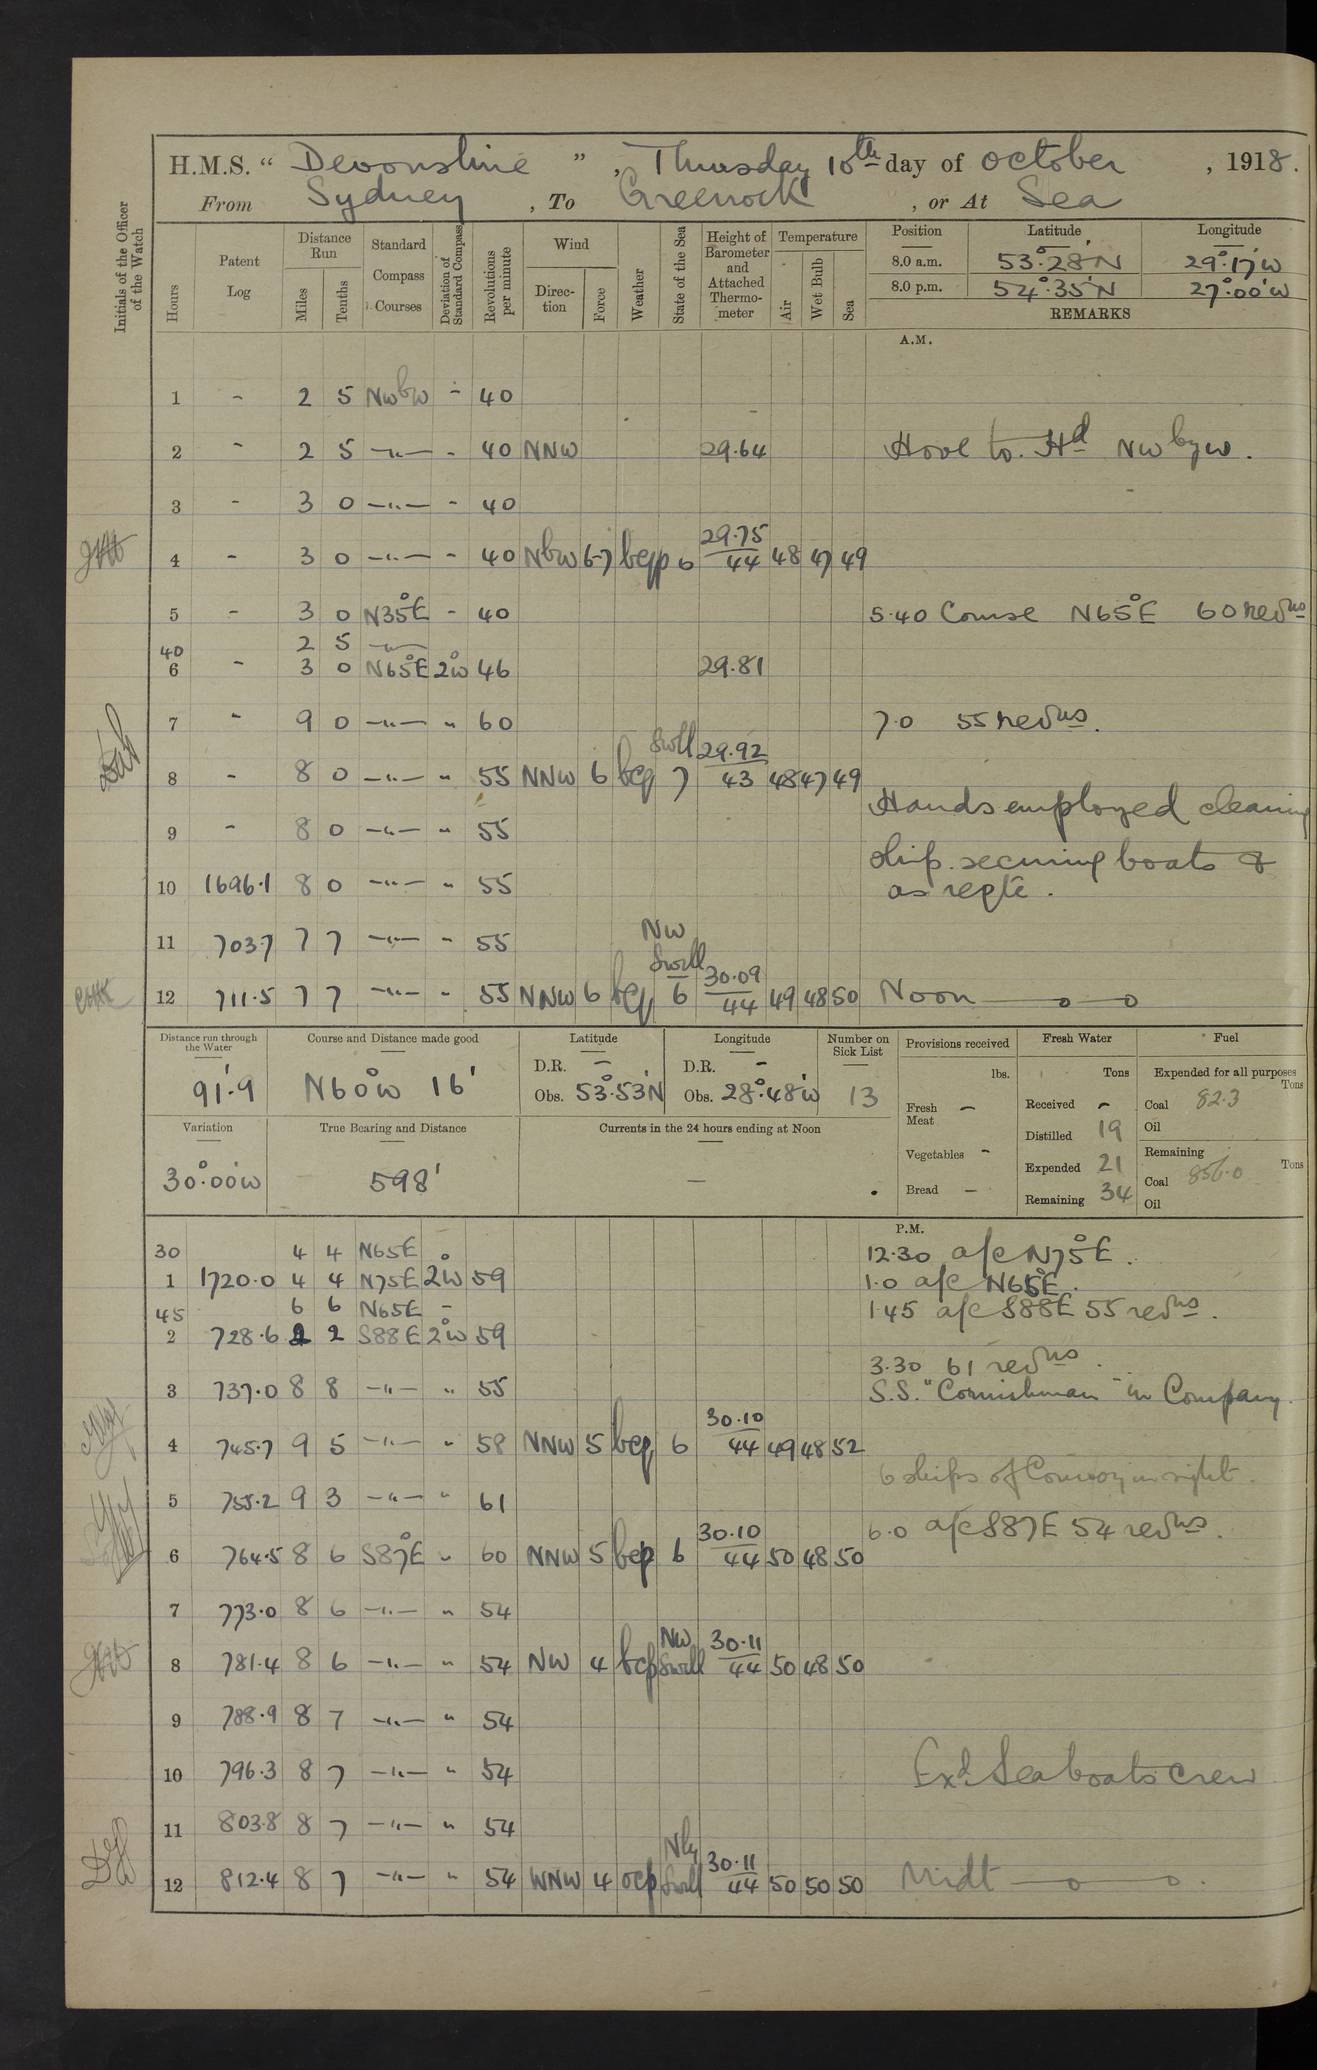 H.M.S. “ Devonshire ”, Thursday 10th day of October, 1918.
From Sydney, To Greenock, or At Sea
Initials of the Officer of the Watch
Hours
Patent Log
Distance Run
Miles Tenths
Standard Compass Courses
Deviation of Standard Compass
Revolutions per minute
Wind
Direction Force
Weather
State of the Sea
Height of Barometer and Attached Thermometer
Temperature
Air Wet Bulb Sea
Position Latitude Longitude
8.0 a.m. 53°.28'N 29°.17'W
8.0 p.m. 54°.35'N 27°.00'W
REMARKS
A.M.
1 - 2 5 NWbW - 40
2 - 2 5 —"— - 40 NNW 29.64 Hove to. Hd NW by W.
3 - 3 0 —"— - 40
4 - 3 0 —"— - 40 NbW 6-7 bcqp 6 29.75/44 48 47 49
5 - 3 0 N35°E - 40 5.40 Course N65°E 60 revns
40 2 5 —"—
6 - 3 0 N65°E 2°W 46 29.81
7 - 9 0 —"— " 60 7.0 55 revns.
8 - 8 0 —"— " 55 NNW 6 bcq Swell 7 29.92/43 48 47 49
Hands employed cleaning
9 - 8 0 —"— " 55
ship. securing boats &
10 1696.1 8 0 —"— " 55 as reqte.
11 703.7 7 7 —"— " 55
12 711.5 7 7 —"— " 55 NNW 6 bcq NW Swell 6 30.09/44 49 48 50 Noon —o—o
Distance run through the Water
91'.9
Course and Distance made good
N60°W 16'
Latitude
D.R. -
Obs. 53°.53'N
Longitude
D.R. -
Obs. 28°.48'W
Number on Sick List
13
Provisions received
lbs.
Fresh Meat -
Vegetables -
Bread -
Fresh Water
Tons
Received -
Distilled 19
Expended 21
Remaining 34
Fuel
Expended for all purposes
Tons
Coal 82.3
Oil
Remaining
Tons
Coal 856.0
Oil
Variation
30°.00'W
True Bearing and Distance
598'
Currents in the 24 hours ending at Noon
—
P.M.
30 4 4 N65E 12.30 a/c N75°E.
1 1720.0 4 4 N75E 2°W 59 1.0 a/c N65°E.
45 6 6 N65E - 1.45 a/c S88E 55 revns.
2 728.6 2 2 S88E 2°W 59
3.30 61 revns.
3 737.0 8 8 —"— " 55 S.S. "Cornishman" in Company.
4 745.7 9 5 —"— " 58 NNW 5 bcq 6 30.10/44 49 48 52
6 ships of Convoy in sight.
5 755.2 9 3 —"— " 61
6.0 a/c S87E 54 revns.
6 764.5 8 6 S87°E " 60 NNW 5 bcp 6 30.10/44 50 48 50
7 773.0 8 6 —"— " 54
8 781.4 8 6 —"— " 54 NW 4 bcp NW Swell 30.11/44 50 48 50
9 788.9 8 7 —"— " 54
10 796.3 8 7 —"— " 54 Exd. Seaboats Crew
11 803.8 8 7 —"— " 54
12 812.4 8 7 —"— " 54 WNW 4 ocp Nly Swell 30.11/44 50 50 50 Midt —o—o.